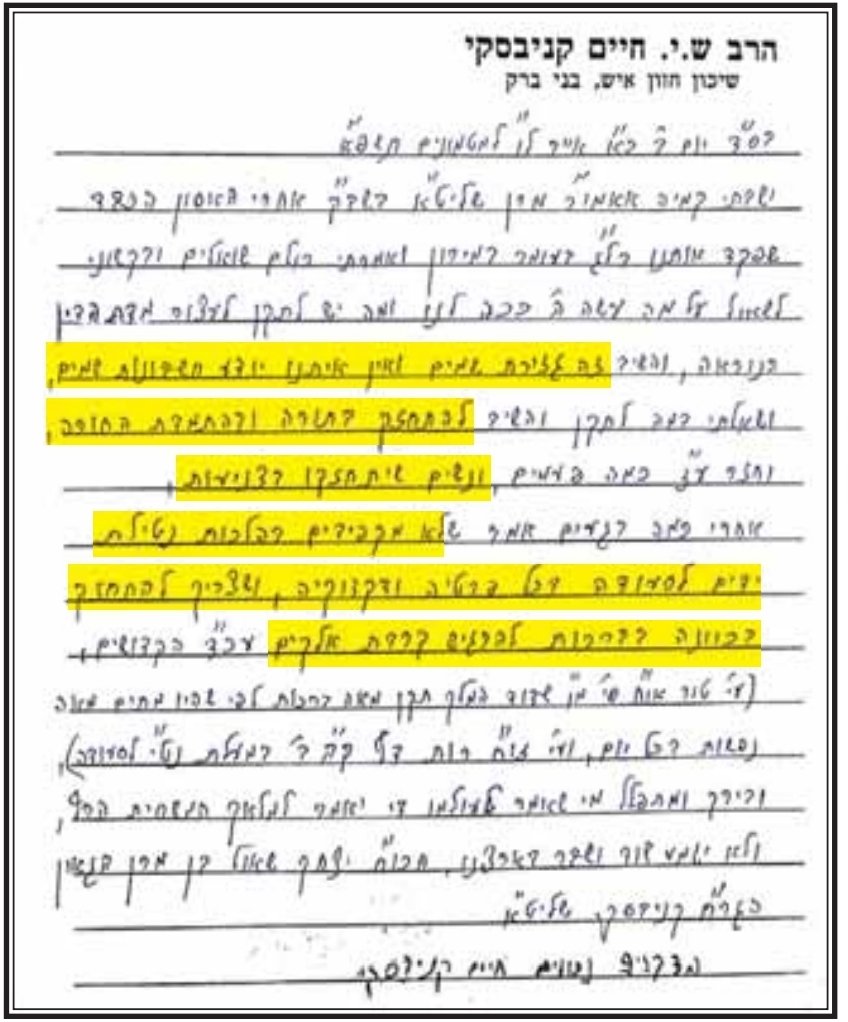 הרב ש.י. חיים קניבסקי
שיכון חזון איש, בני ברק
בס"ד יום ב' כ"א אייר ל"ו למטמונים תשפ"א
ישבתי קמיה אאמו"ר מרן שליט"א בשב"ק אחרי האסון הכבד
שפקד אותנו בל"ג בעומר במירון ואמרתי כולם שואלים ובקשוני
לשאול על מה עשה ה' ככה לנו ומה יש לתקן לעצור מדת הדין
הנוראה, והשיב זה גזירת שמים ואין איתנו יודע חשבונות שמים,
ושאלתי במה לתקן והשיב להתחזק בתורה ובהתמדת התורה,
וחזר ע"ז כמה פעמים, ונשים שיתחזקו בצניעות,
אחרי כמה רגעים אמר שלא מקפידים בהלכות נטילת
ידים לסעודה בכל פרטיה ודקדוקיה, ושצריך להתחזק
בכוונה בברכות להרגיש קרבת אלקים עכ"ד הקדושים,
(עי' טור או"ח סי' מ"ו שדוד המלך תקן מאה ברכות לפי שהיו מתים מאה
נפשות בכל יום, ועי' זוה"ח רות דף ק"ב ב' במעלת נט"י לסעודה),
ובירך ומתפלל מי שאומר לעולמו די יאמר למלאך המשחית הרף,
ולא ישמע שוד ושבר בארצנו, הכו"ח יצחק שאול בן מרן הגאון
הגר"ח קניבסקי שליט"א
הדברים נכונים חיים קניבסקי